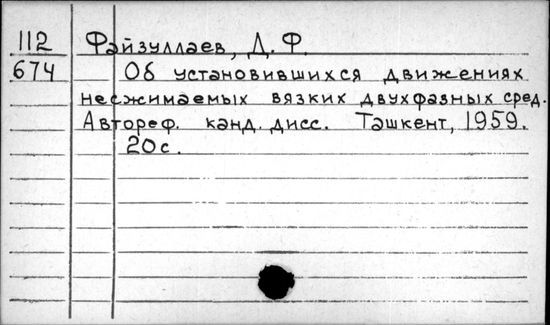 112 Файзуллаев, Д. Ф.
674 Об установившихся движениях
несжимаемых вязких двухфазных сред.
Автореф. канд. дисс. Ташкент, 1959.
20с.